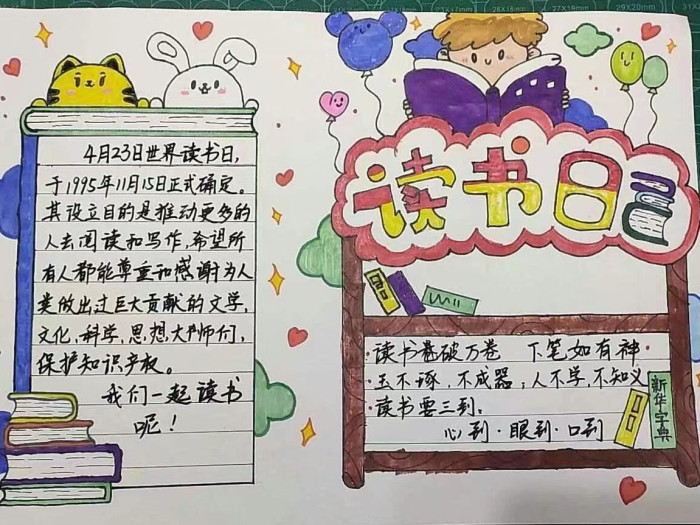 4月23日世界读书日,
于1995年11月15日正式确定。
其设立目的是推动更多的
人去阅读和写作,希望所
有人都能尊重和感谢为人
类做出过巨大贡献的文学,
文化,科学,思想大师们,
保护知识产权。
我们一起读书
呢!
读书日
·读书卷破万卷 下笔如有神
·玉不琢,不成器;人不学,不知义
·读书要三到:
心到·眼到·口到
新华字典